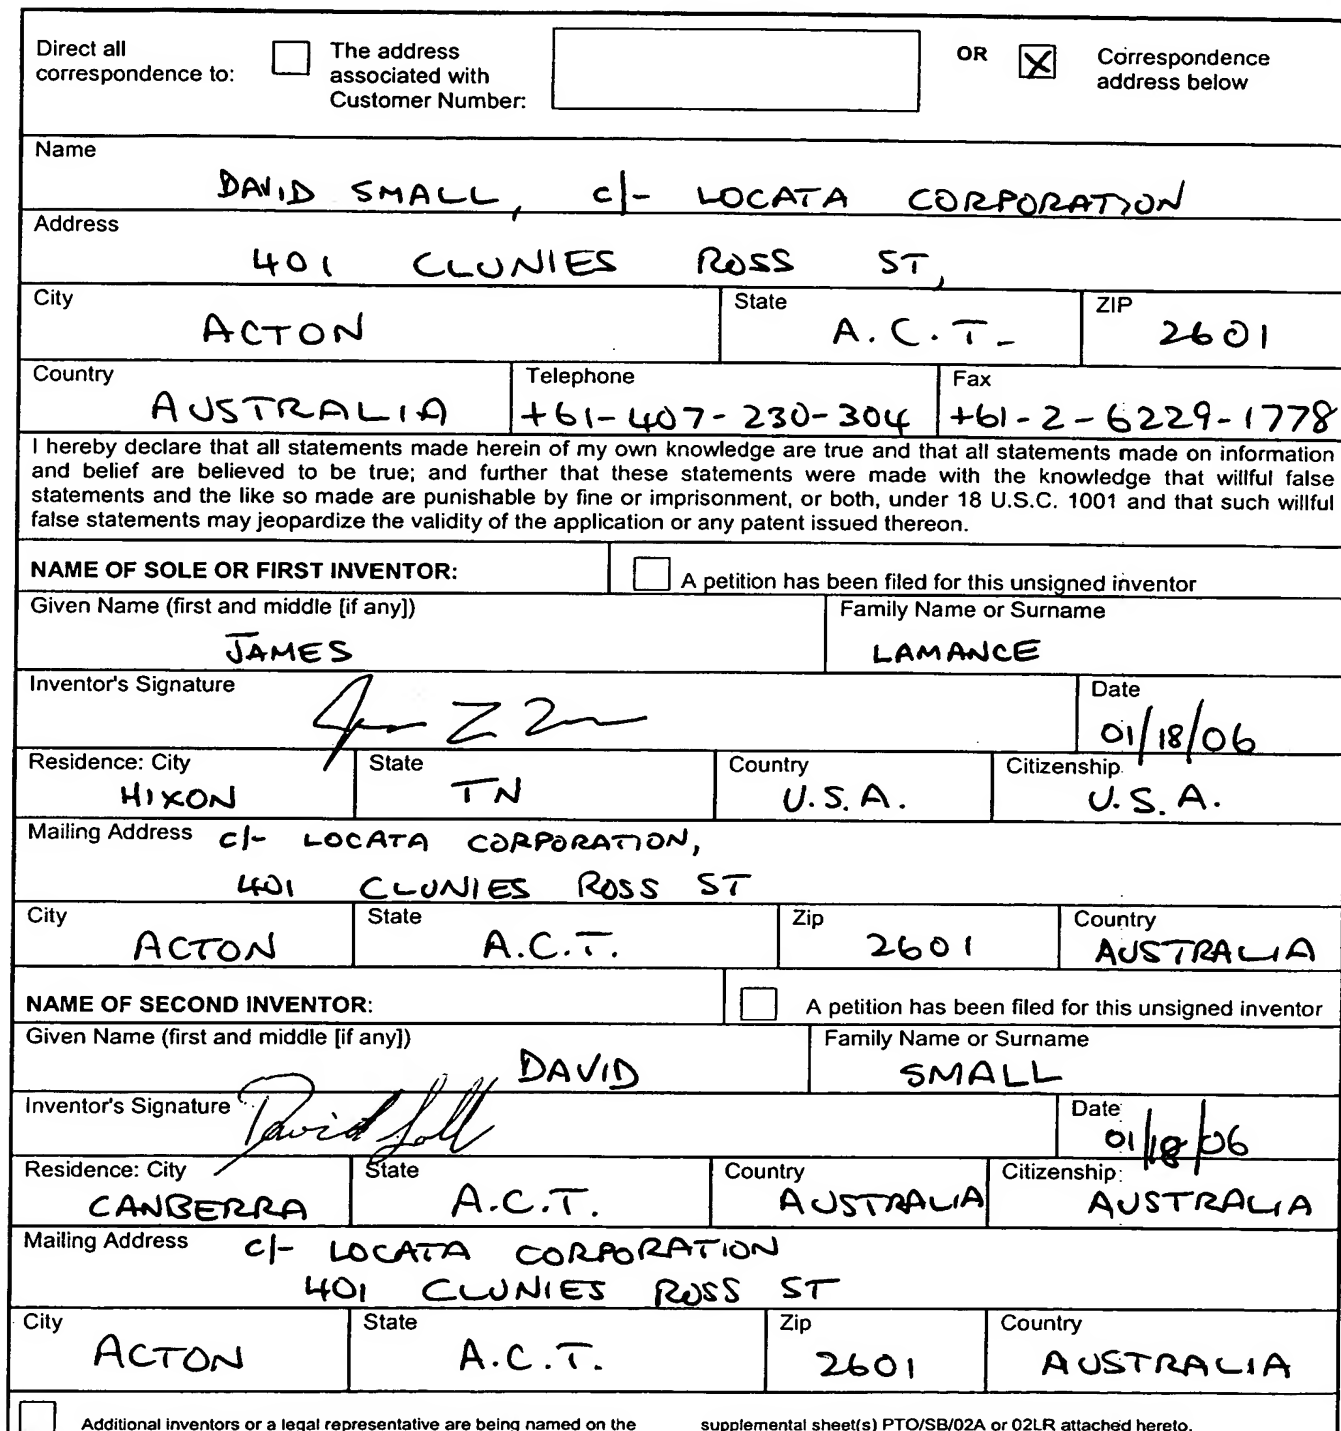 Direct all The address OR X Correspondence
correspondence to: associated with address below
Customer Number:
Name
DAVID SMALL, c/- LOCATA CORPORATION
Address
401 CLUNIES ROSS ST,
City State ZIP
ACTON A.C.T. 2601
Country Telephone Fax
AUSTRALIA +61-407-230-304 +61-2-6229-1778
I hereby declare that all statements made herein of my own knowledge are true and that all statements made on information
and belief are believed to be true; and further that these statements were made with the knowledge that willful false
statements and the like so made are punishable by fine or imprisonment, or both, under 18 U.S.C. 1001 and that such willful
false statements may jeopardize the validity of the application or any patent issued thereon.
NAME OF SOLE OR FIRST INVENTOR: A petition has been filed for this unsigned inventor
Given Name (first and middle [if any]) Family Name or Surname
JAMES LAMANCE
Inventor's Signature Date
01/18/06
Residence: City State Country Citizenship
HIXON TN U.S.A. U.S.A.
Mailing Address c/- LOCATA CORPORATION,
401 CLUNIES ROSS ST
City State Zip Country
ACTON A.C.T. 2601 AUSTRALIA
NAME OF SECOND INVENTOR: A petition has been filed for this unsigned inventor
Given Name (first and middle [if any]) Family Name or Surname
DAVID SMALL
Inventor's Signature David Date
01/18/06
Residence: City State Country Citizenship
CANBERRA A.C.T. AUSTRALIA AUSTRALIA
Mailing Address c/- LOCATA CORPORATION
401 CLUNIES ROSS ST
City State Zip Country
ACTON A.C.T. 2601 AUSTRALIA
Additional inventors or a legal representative are being named on the supplemental sheet(s) PTO/SB/02A or 02LR attached hereto.